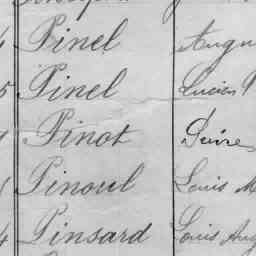 Pinel Augu
Pinel Lucien
Pinot
Pinoul Louis M
Pinsard Louis Aug